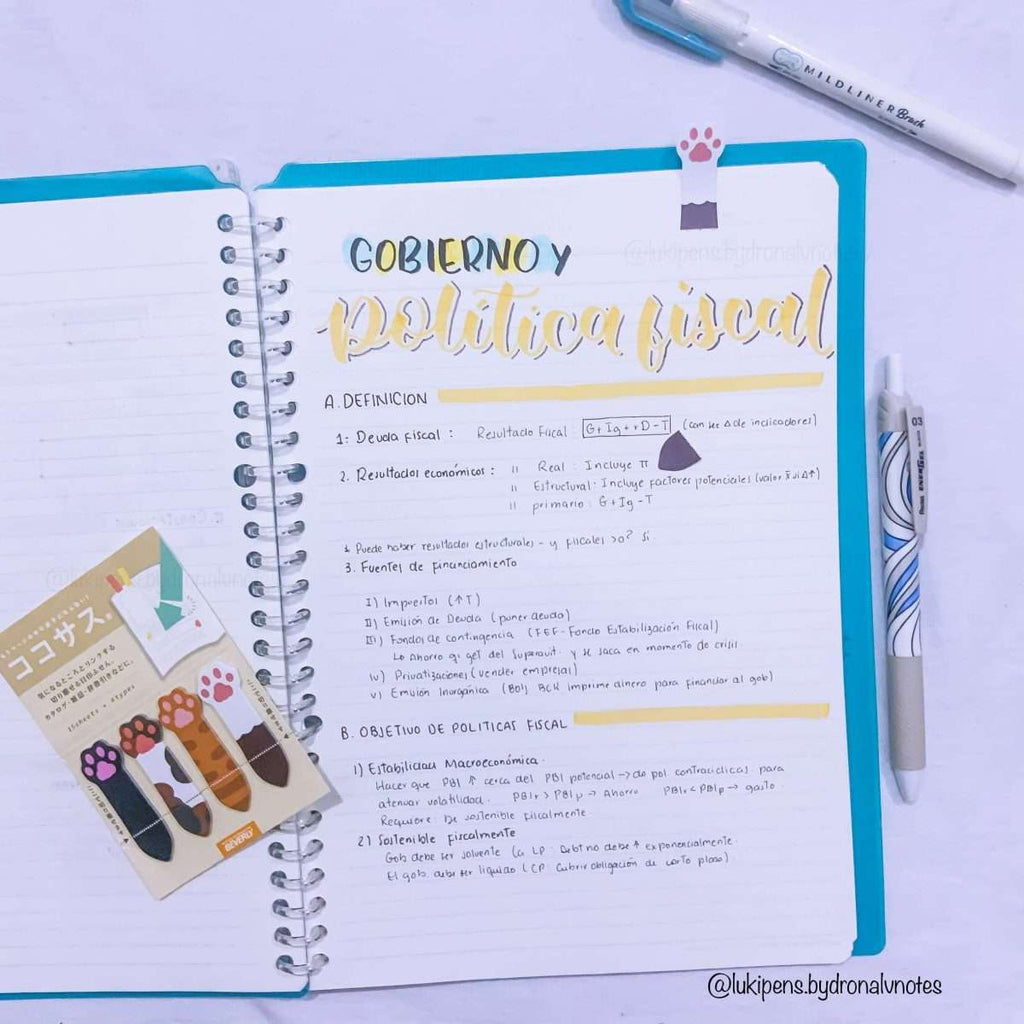 MILDLINER Brush
@lukipens.bydronalvnotes
GOBIERNO Y
política fiscal
A. DEFINICION
1: Deuda fiscal : Resultado Fiscal G+Ig++D-T (con ser Δ de indicadores)
2. Resultados económicos : " Real : Incluye π
" Estructural : Incluye factores potenciales (valor x̄ si Δ↑)
" primario : G+Ig-T
* Puede haber resultados estructurales - y fiscales >0? Si.
3. Fuentes de financiamiento
I) Impuestos (↑T)
II) Emisión de Deuda (poner deuda)
III) Fondos de contingencia (FEF-Fondo Estabilización Fiscal)
Lo Ahorro q. get del superavit. y se saca en momento de crisis
IV) Privatizaciones (vender empresas)
V) Emisión Inorgánica (BCR imprime dinero para financiar al gob)
B. OBJETIVO DE POLITICAS FISCAL
1) Estabilidad Macroeconómica.
Hacer que PBI ↑ cerca del PBI potencial → do pol contraciclicas para
atenuar volatilidad. PBIr > PBIp → Ahorro PBIr < PBIp → gasto.
Requiere: De sostenible fiscalmente.
2) Sostenible fiscalmente
Gob debe ser solvente (a LP : Debt no debe ↑ exponencialmente.
El gob. debe ser liquido (CP: Cubrir obligación de corto plazo)
03
Pentel ENERGEL
ココサス。
気になるところとリンクする
切り離せる目印ふせん。
カタログ・雑誌・辞書引きなどに。
15sheets × 4types
BEVERLY
@lukipens.bydronalvnotes
@lukipens.bydronalvnotes